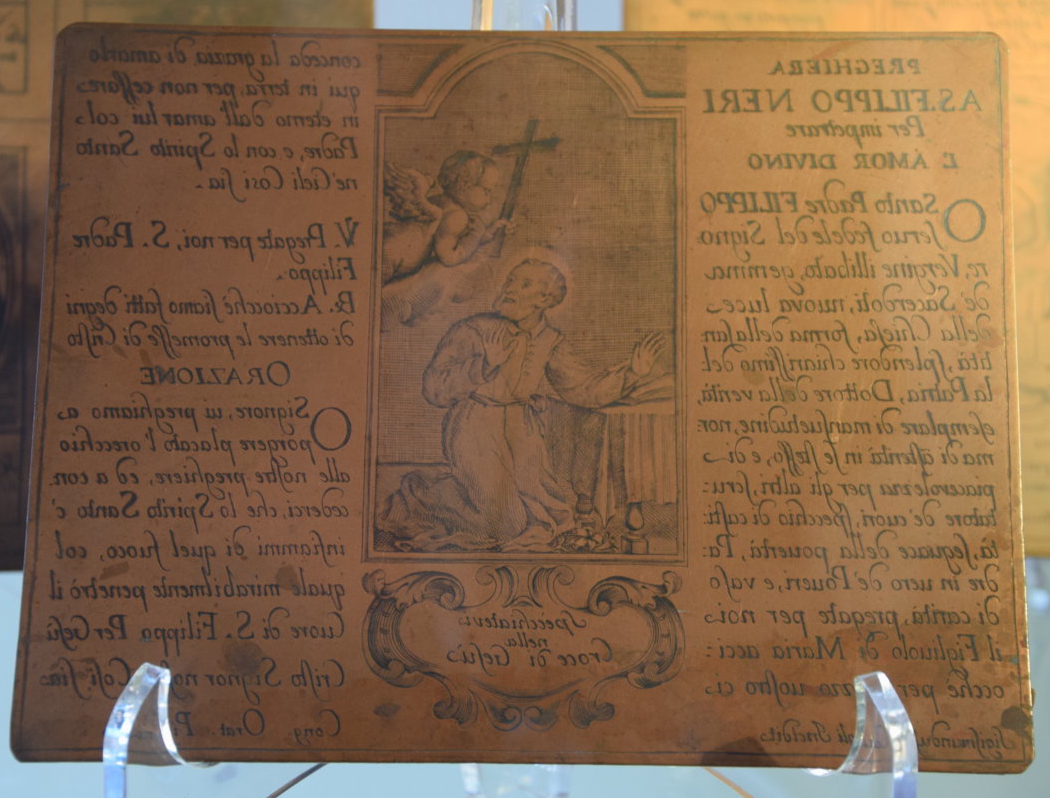 PREGHIERA
A S. FILIPPO NERI
Per impetrare
L'AMOR DIVINO
O Santo Padre FILIPPO
seruo fedele del Signo
re, Vergine illibato, gemma
de' Sacerdoti, nuoua luce
della Chiesa, forma della san
tità, splendore chiarissimo del
la Patria, Dottore della verità,
esemplare di mansuetudine, nor
ma di asterità in se stesso, e di
piaceuolezza per gli altri, scru:
tatore de' cuori, specchio di casti:
tà, seguace della pouertà, Pa:
dre in uero de' Poueri, e vaso
di carità, pregate per noi
il Figliuolo di Maria acci:
occhè per uostro ci
conceda la grazia di amarlo
qui in terra, per non cessare
in eterno dall'amar lui col
Padre, e con lo Spirito Santo
ne' Cieli Così sia.
V. Pregate per noi, S. Padre
Filippo.
R. Acciocchè siamo fatti degni
di ottenere le promesse di Cristo
ORAZIONE
O Signore, ui preghiamo a
porgere placato l'orecchio
alle nostre preghiere, ed a con
cederci, che lo Spirito Santo c'
infiammi di quel fuoco, col
quale mirabilmente penetrò il
Cuore di S. Filippo Per Gesù
Cristo Signor Così sia
Specchiateui
nella
Croce di Gesù
Cong. Orat.
Incidit